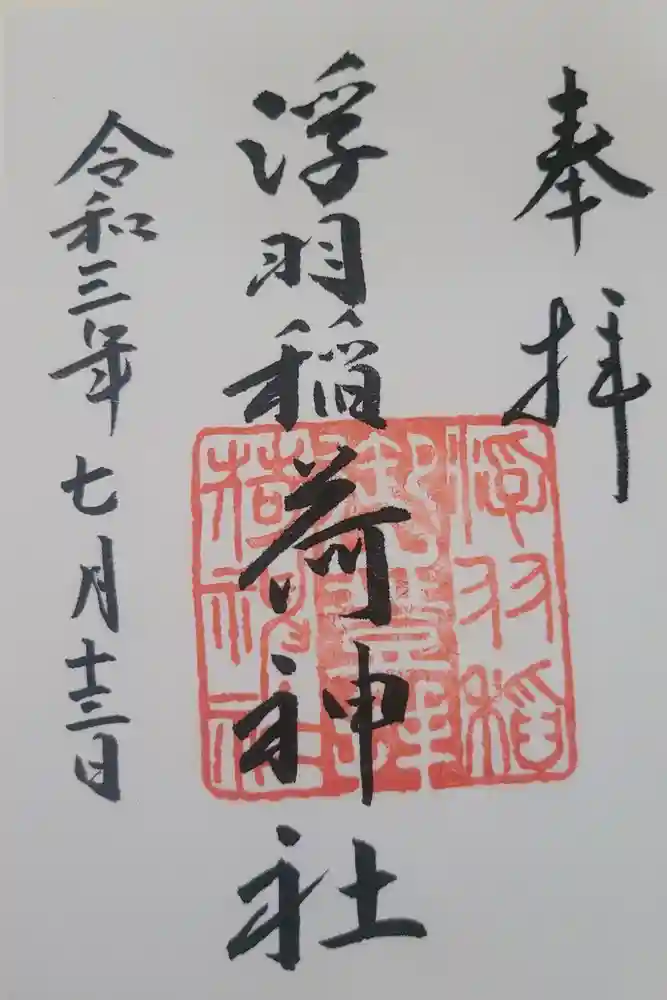 奉拝
浮羽稲荷神社
浮羽稲
荷神社
令和三年七月十二日